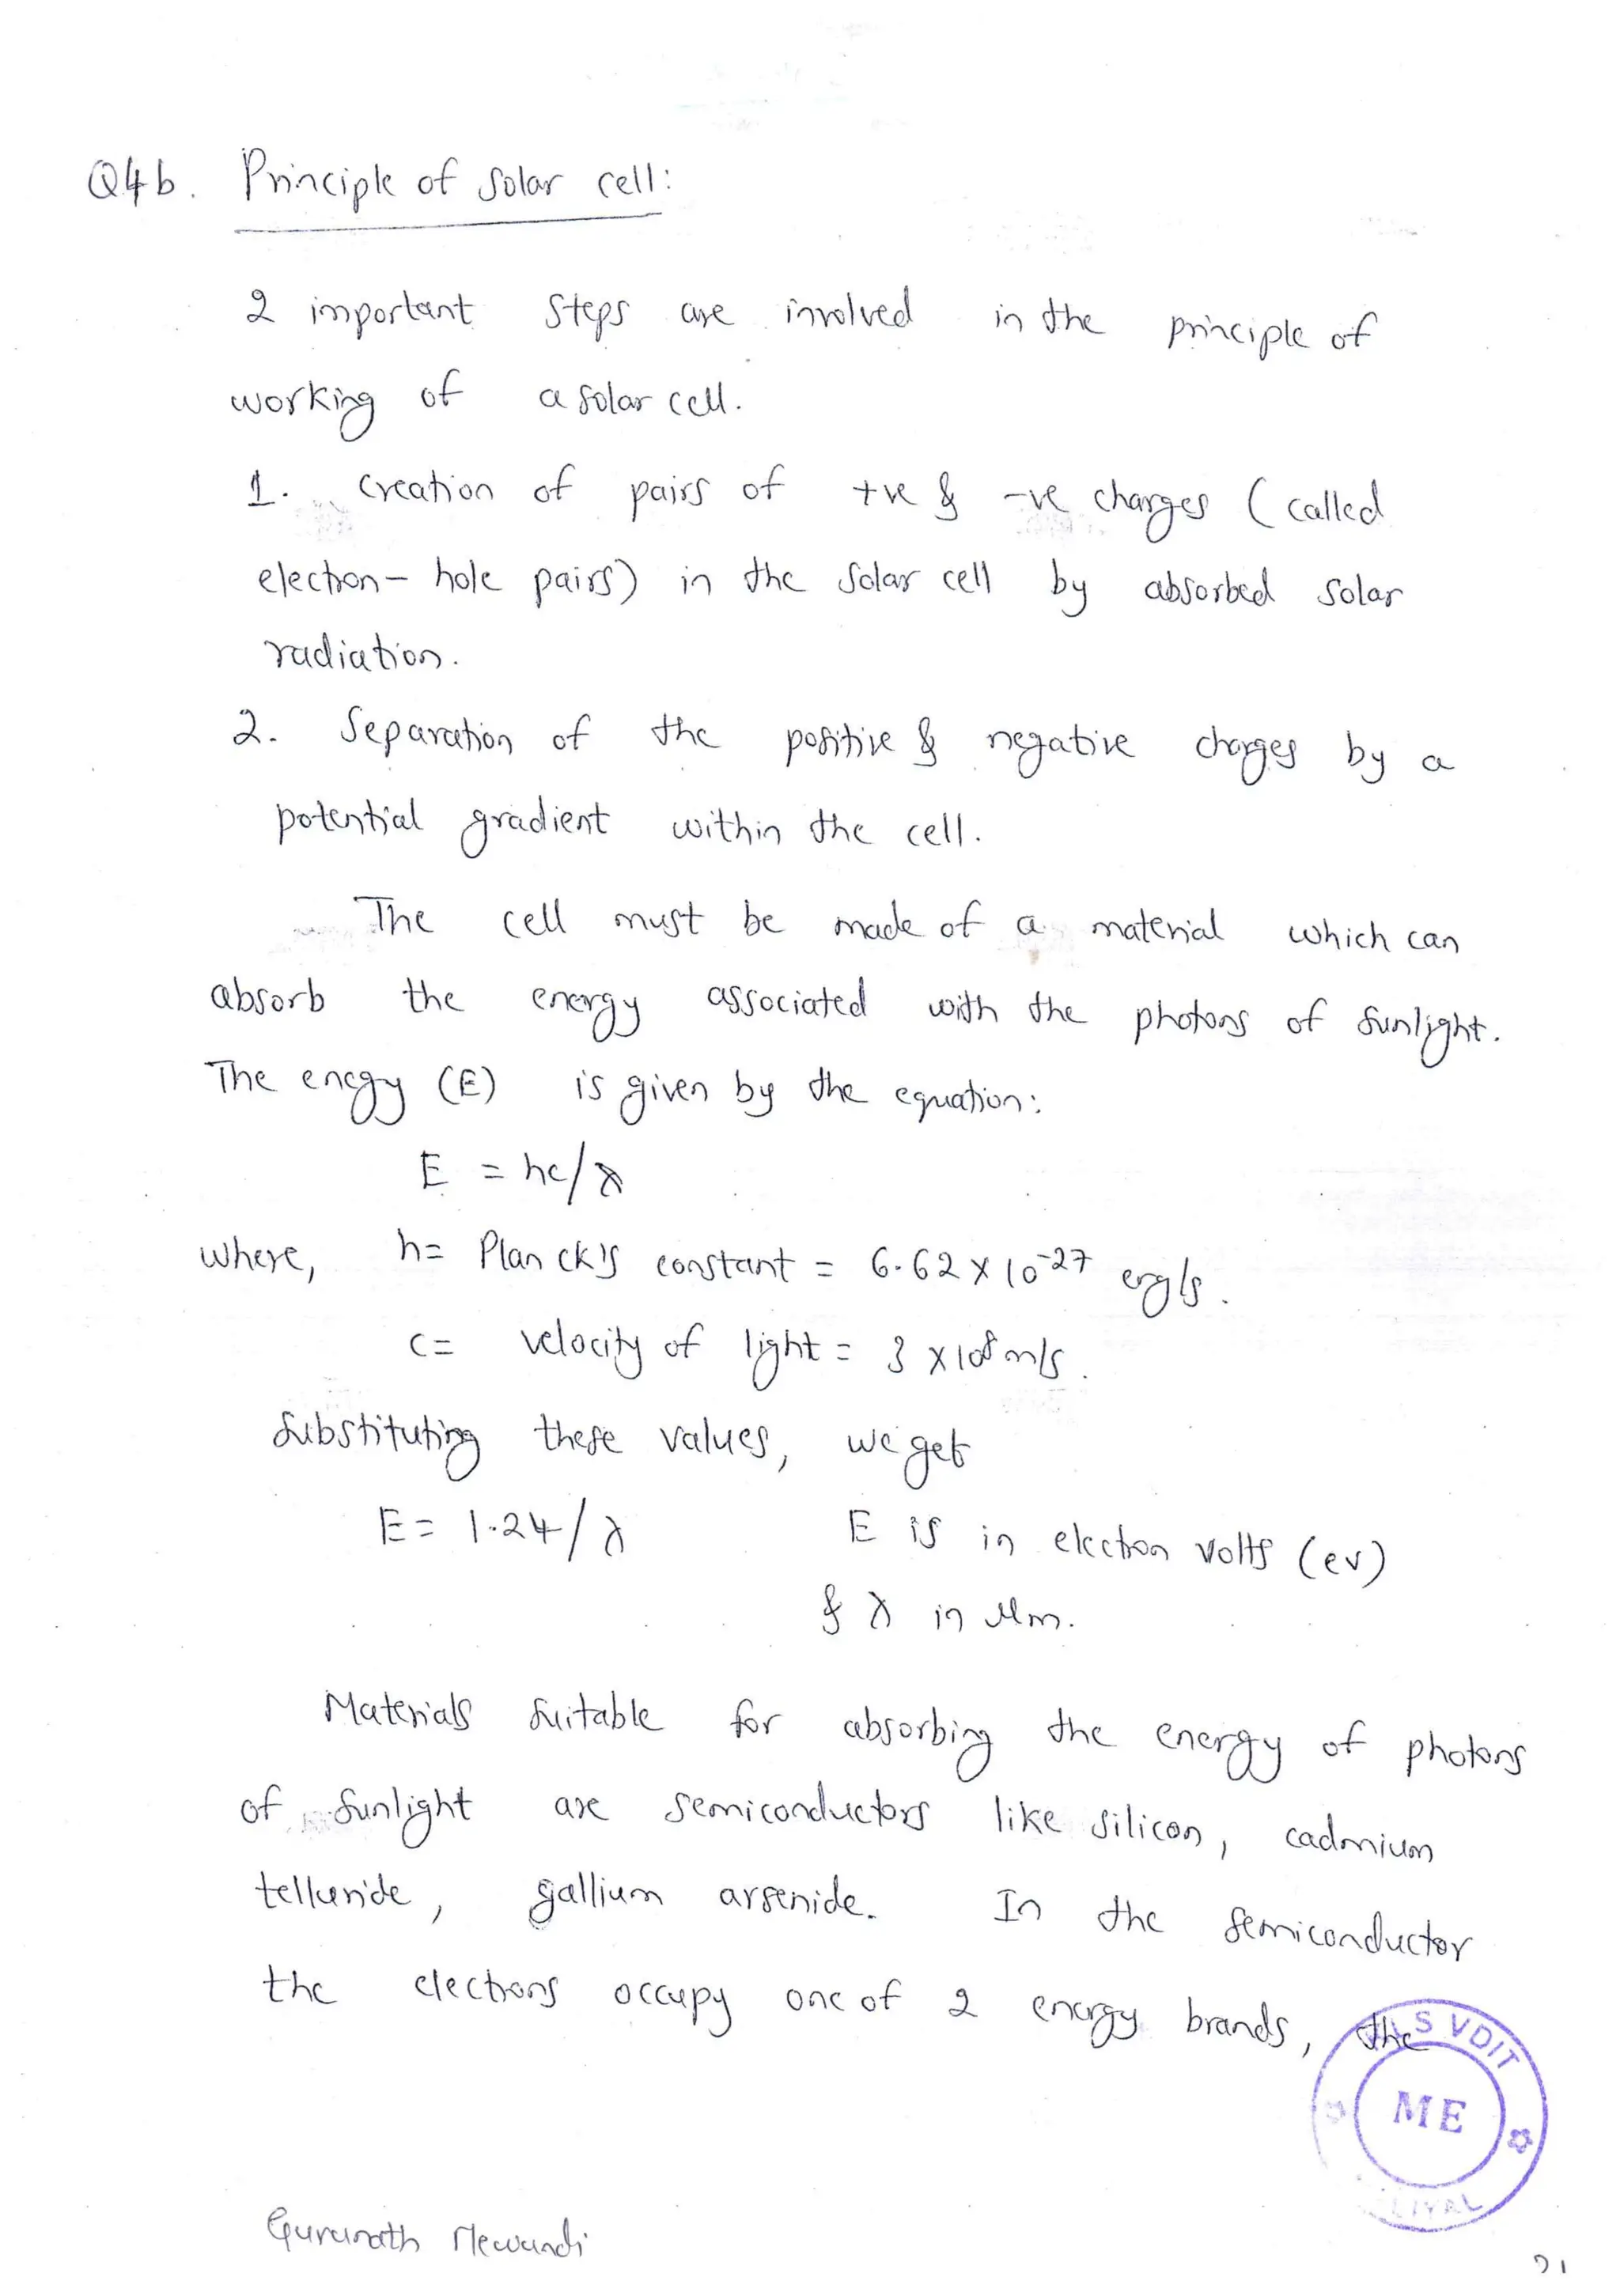 Q4b. Principle of solar cell:
2 important steps are involved in the principle of
working of a solar cell.
1. Creation of pairs of +ve & -ve charges (called
electron- hole pairs) in the solar cell by absorbed solar
radiation.
2. Separation of the positive & negative charges by a
potential gradient within the cell.
The cell must be made of a material which can
absorb the energy associated with the photons of sunlight.
The enegy (E) is given by the equation:
E = hc/λ
where, h= Planck's constant = 6.62 x 10⁻²⁷ erg/s.
c= velocity of light = 3 x10⁸ m/s.
Substituting these values, we get
E= 1.24/λ E is in electron volts (ev)
& λ in μm.
Materials suitable for absorbing the energy of photons
of sunlight are semiconductors like silicon, cadmium
telluride, gallium arsenide. In the semiconductor
the electrons occupy one of 2 energy brands, the
LS VDIT
ME
LIYAL
Gururath Mewundi
21